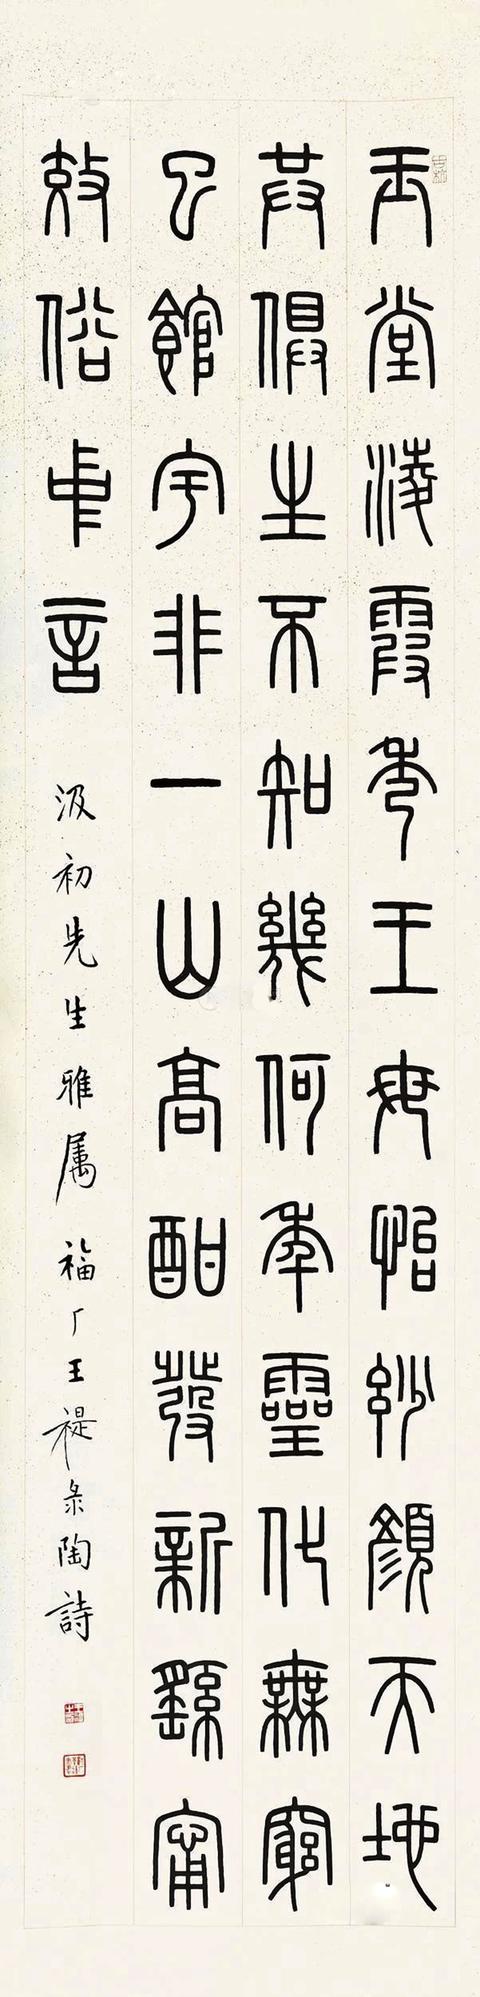 玉堂淩霞秀王母怡玅顏天地
共俱生不知幾何年靈化無窮
已館宇非一山高酣發新繇甯
效俗中言
汲初先生雅属 福厂王禔彔陶詩